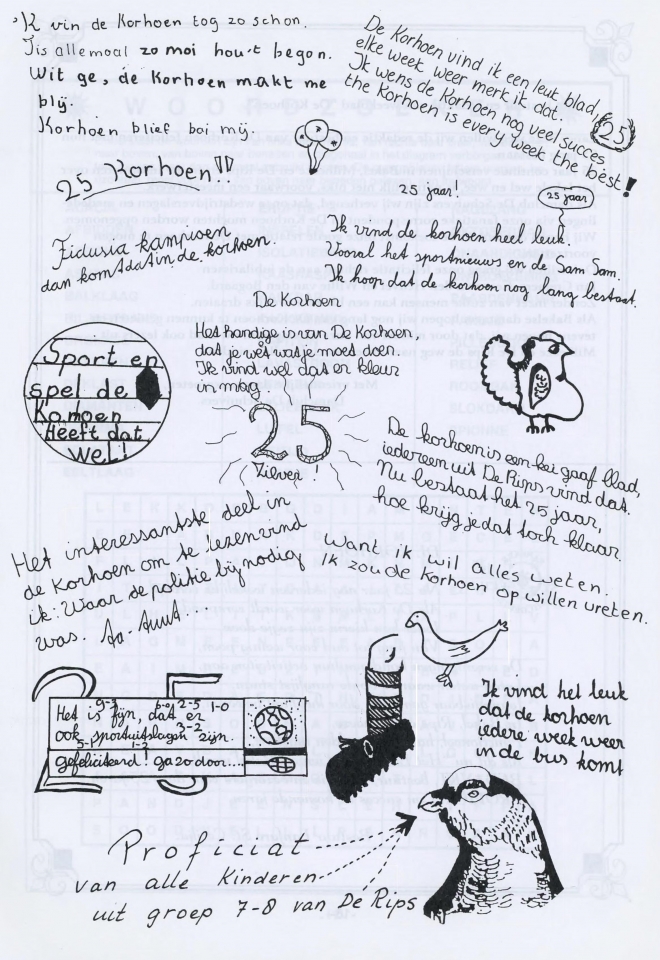 'K vin de Korhoen tog zo schon.
Tis allemaal zo moi hou-t begon.
Wit ge, de Korhoen makt me
blij.
Korhoen blief boi mij.
De Korhoen vind ik een leuk blad,
elke week weer merk ik dat.
Ik wens de Korhoen nog veel succes
the Korhoen is every week the best!
25
25 Korhoen!!!
25 jaar!
25 jaar
Fidusia kampioen
dan komt dat in de korhoen.
Ik vind de korhoen heel leuk.
Vooral het sportnieuws en de Sam Sam.
Ik hoop dat de korhoen nog lang bestaat.
De Korhoen
Het handige is van De Korhoen,
dat je wèt wat je moet doen.
Ik vind wel dat er kleur
in mag
Sport en
spel de
Kormoen
Heeft dat
wel!
25
Zilver!
De korhoen is een kei gaaf blad,
iedereen uit De Rips vind dat.
Nu bestaat het 25 jaar,
hoe krijg je dat toch klaar.
Het interessantste deel in
de Korhoen om te lezen vind
ik: Waar de politie bij nodig
was. Ta-tuut...
Want ik wil alles weten.
Ik zou de Korhoen op willen vreten.
Het is fijn, dat er
ook sportuitslagen zijn.
gefeliciteerd! ga zo door....
Ik vind het leuk
dat de korhoen
iedere week weer
in de bus komt
Proficiat
van alle Kinderen
uit groep 7-8 van De Rips